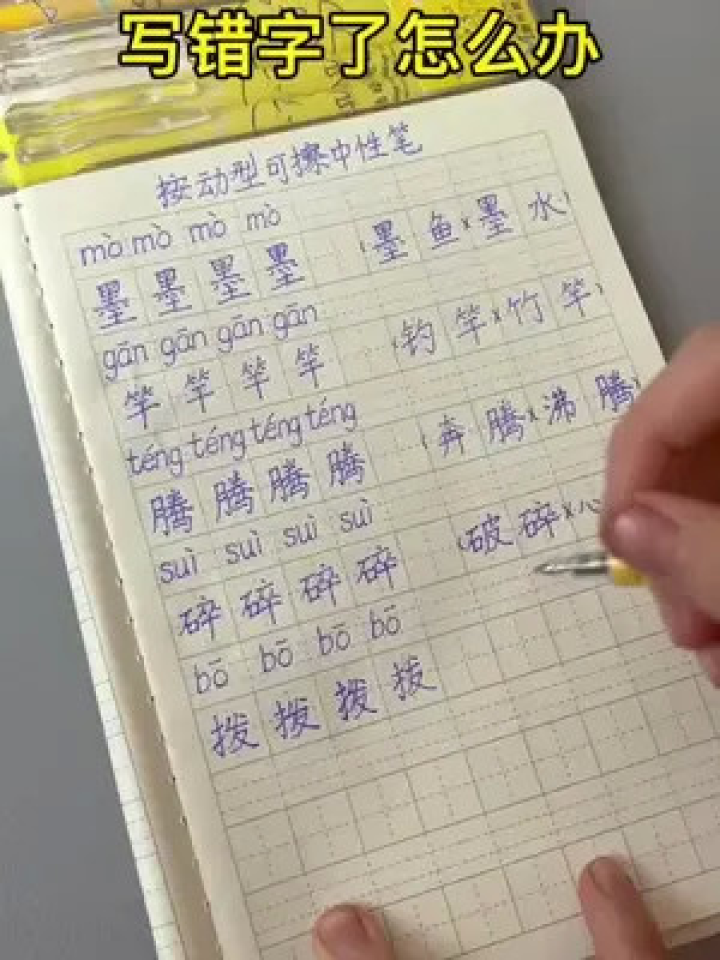 写错字了怎么办
按动型可擦中性笔
mò mò mò mò
墨 墨 墨 墨 (墨 鱼)(墨 水)
gān gān gān gān
竿 竿 竿 竿 (钓 竿)(竹 竿)
téng téng téng téng
腾 腾 腾 腾 (奔 腾)(沸 腾)
suì suì suì suì
碎 碎 碎 碎 (破 碎)(心
bō bō bō bō
拨 拨 拨 拨